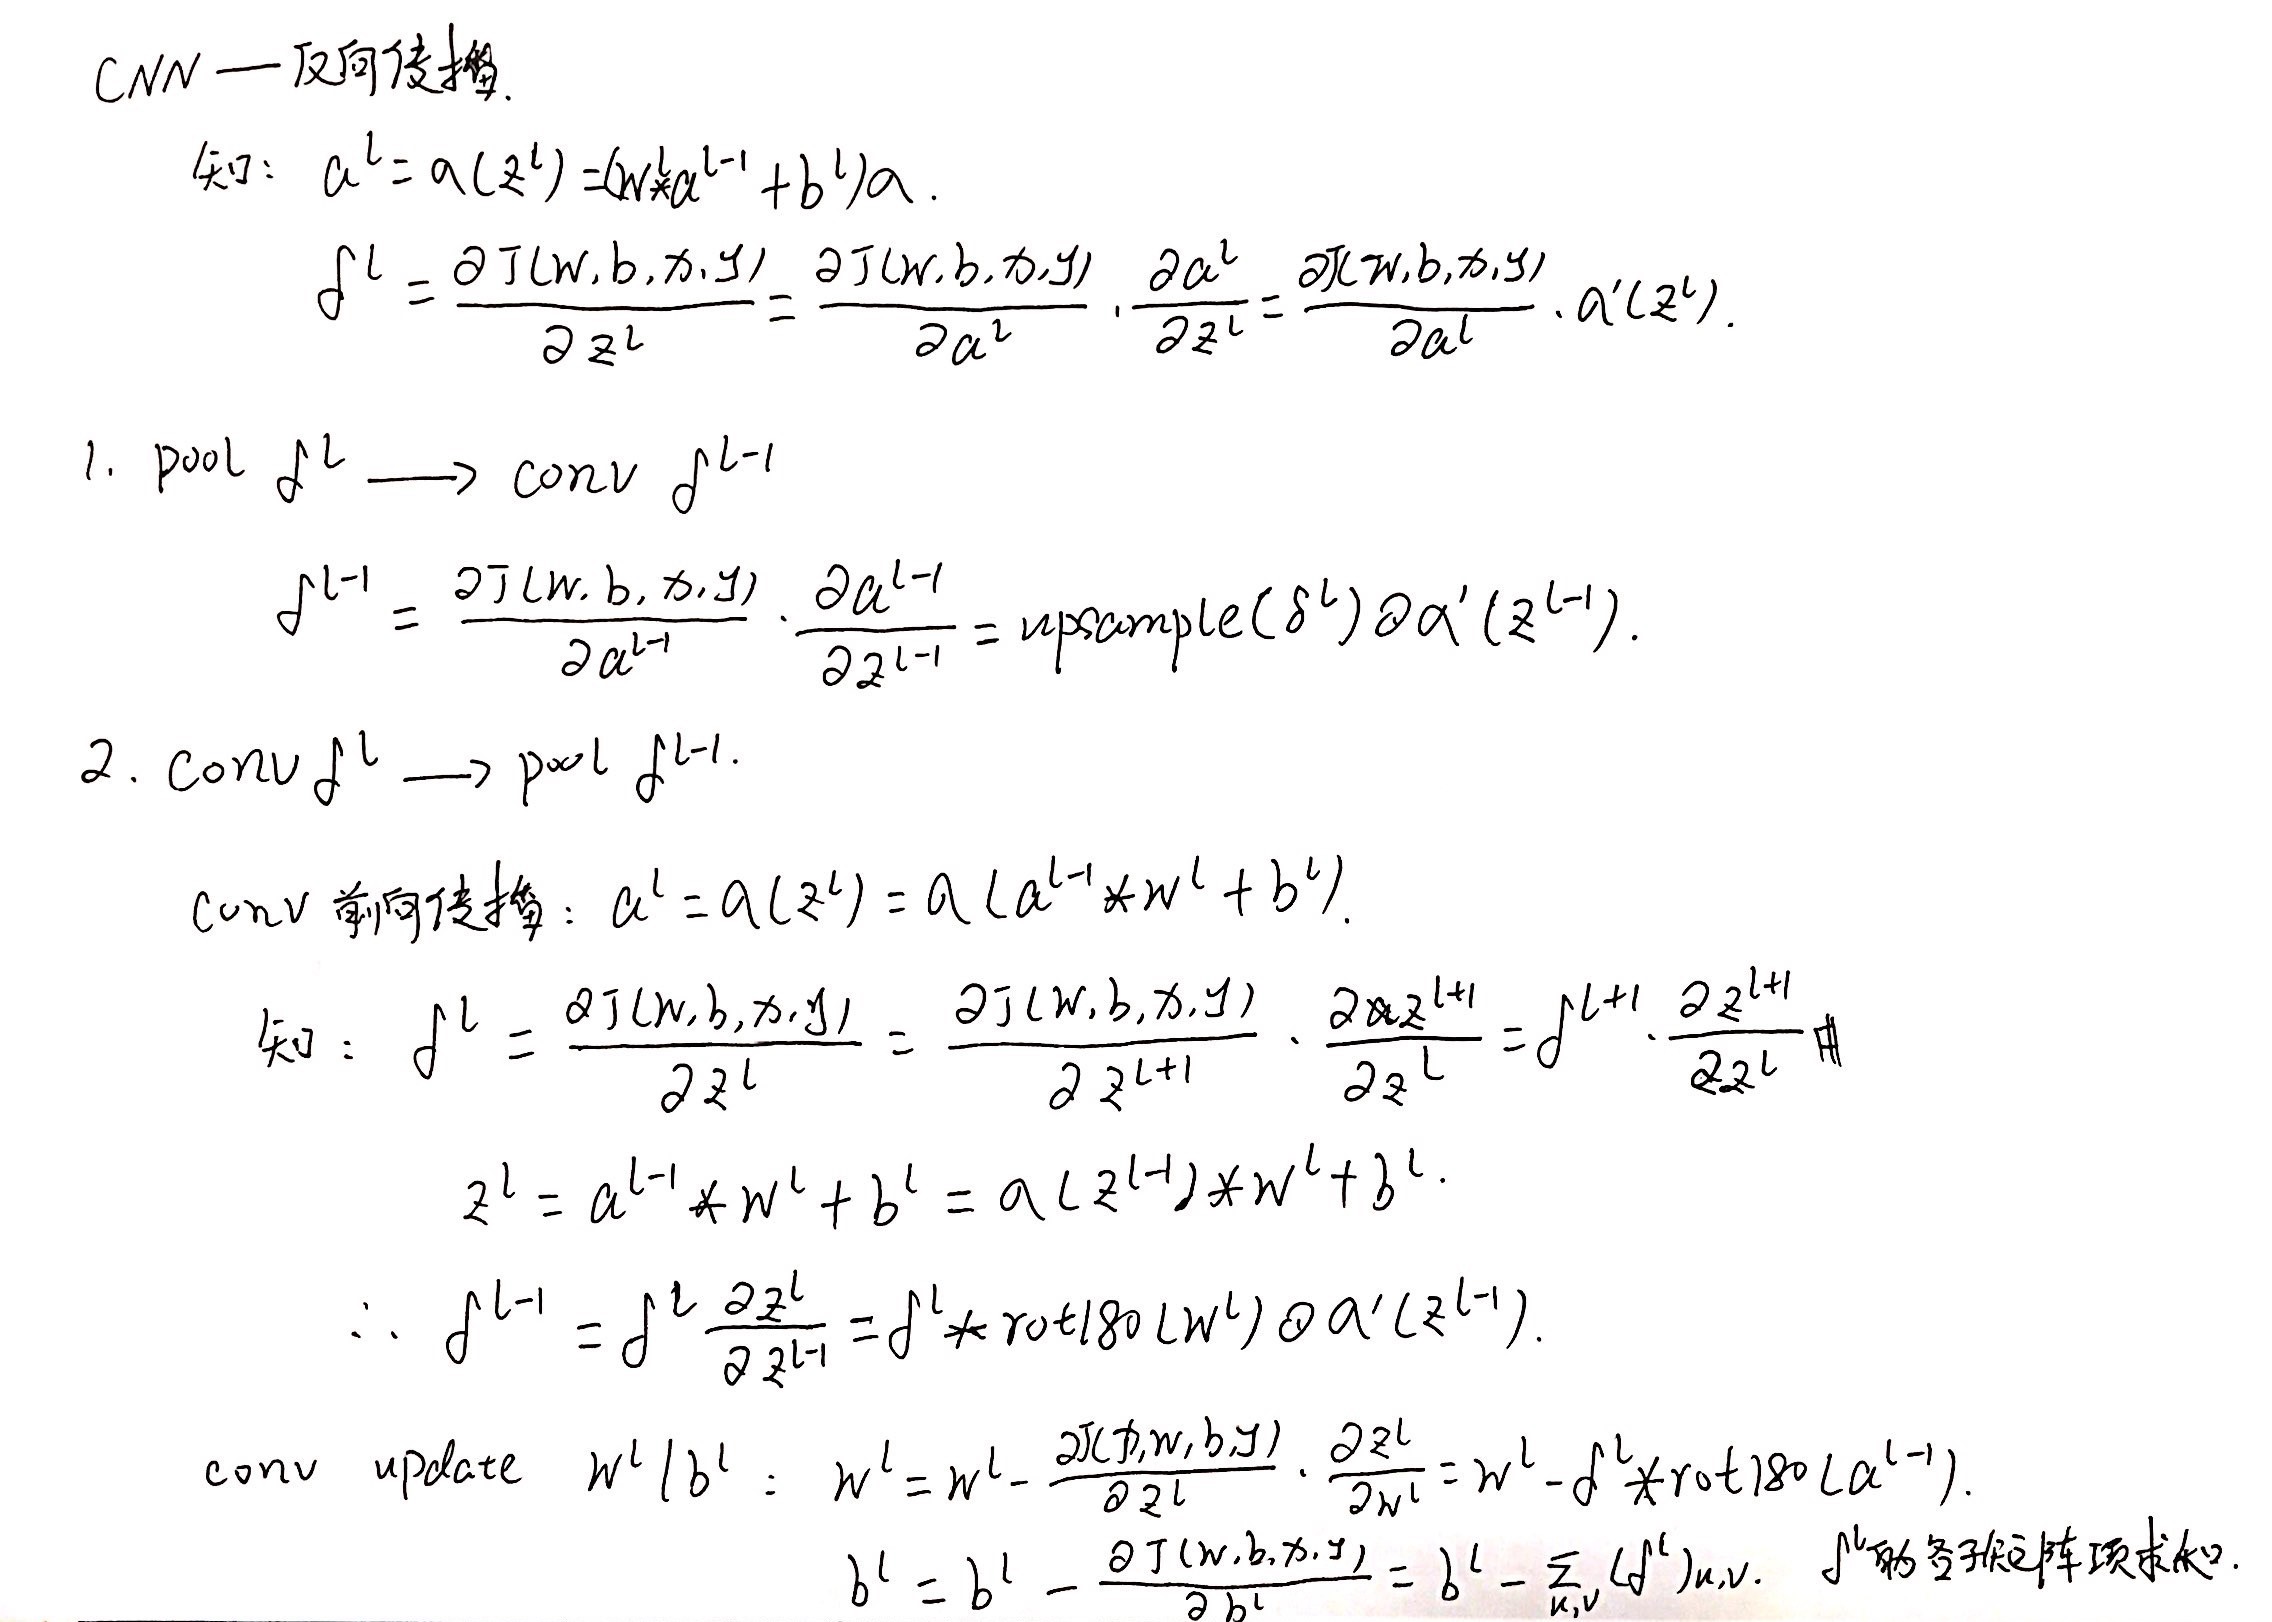 CNN — 反向传播.
知: a^l = a(z^l) = (w^l * a^{l-1} + b^l)a.
δ^l = ∂J(w,b,x,y)/∂z^l = ∂J(w,b,x,y)/∂a^l · ∂a^l/∂z^l = ∂J(w,b,x,y)/∂a^l · a'(z^l).
1. pool δ^l ⟶ conv δ^{l-1}
δ^{l-1} = ∂J(w,b,x,y)/∂a^{l-1} · ∂a^{l-1}/∂z^{l-1} = upsample(δ^l) ⊙ a'(z^{l-1}).
2. conv δ^l ⟶ pool δ^{l-1}.
conv 前向传播: a^l = a(z^l) = a(a^{l-1} * w^l + b^l).
知: δ^l = ∂J(w,b,x,y)/∂z^l = ∂J(w,b,x,y)/∂z^{l+1} · ∂z^{l+1}/∂z^l = δ^{l+1} · ∂z^{l+1}/∂z^l
z^l = a^{l-1} * w^l + b^l = a(z^{l-1}) * w^l + b^l.
∴ δ^{l-1} = δ^l ∂z^l/∂z^{l-1} = δ^l * rot180(w^l) ⊙ a'(z^{l-1}).
conv update w^l/b^l: w^l = w^l - ∂J(x,w,b,y)/∂z^l · ∂z^l/∂w^l = w^l - δ^l * rot180(a^{l-1}).
b^l = b^l - ∂J(w,b,x,y)/∂b^l = b^l - Σ_{u,v} (δ^l)u,v. δ^l的各子矩阵项求和.